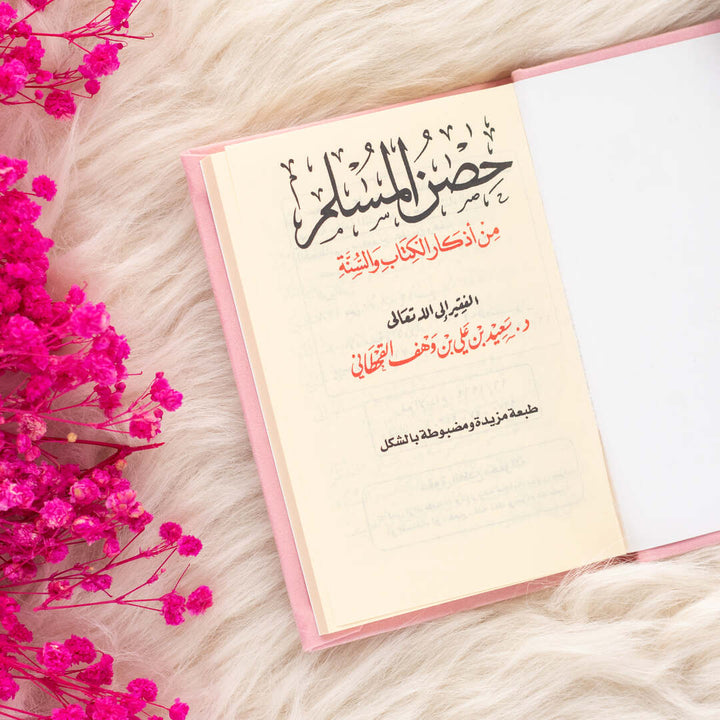 حِصْنُ المُسْلِم
مِنْ أذكَارِ الكِتَابِ وَالسُّنَّةِ
الفقير إلى الله تعالى
د. سَعِيد بْن عَلي بن وَهف القَحْطَاني
طبعة مزيدة ومضبوطة بالشكل